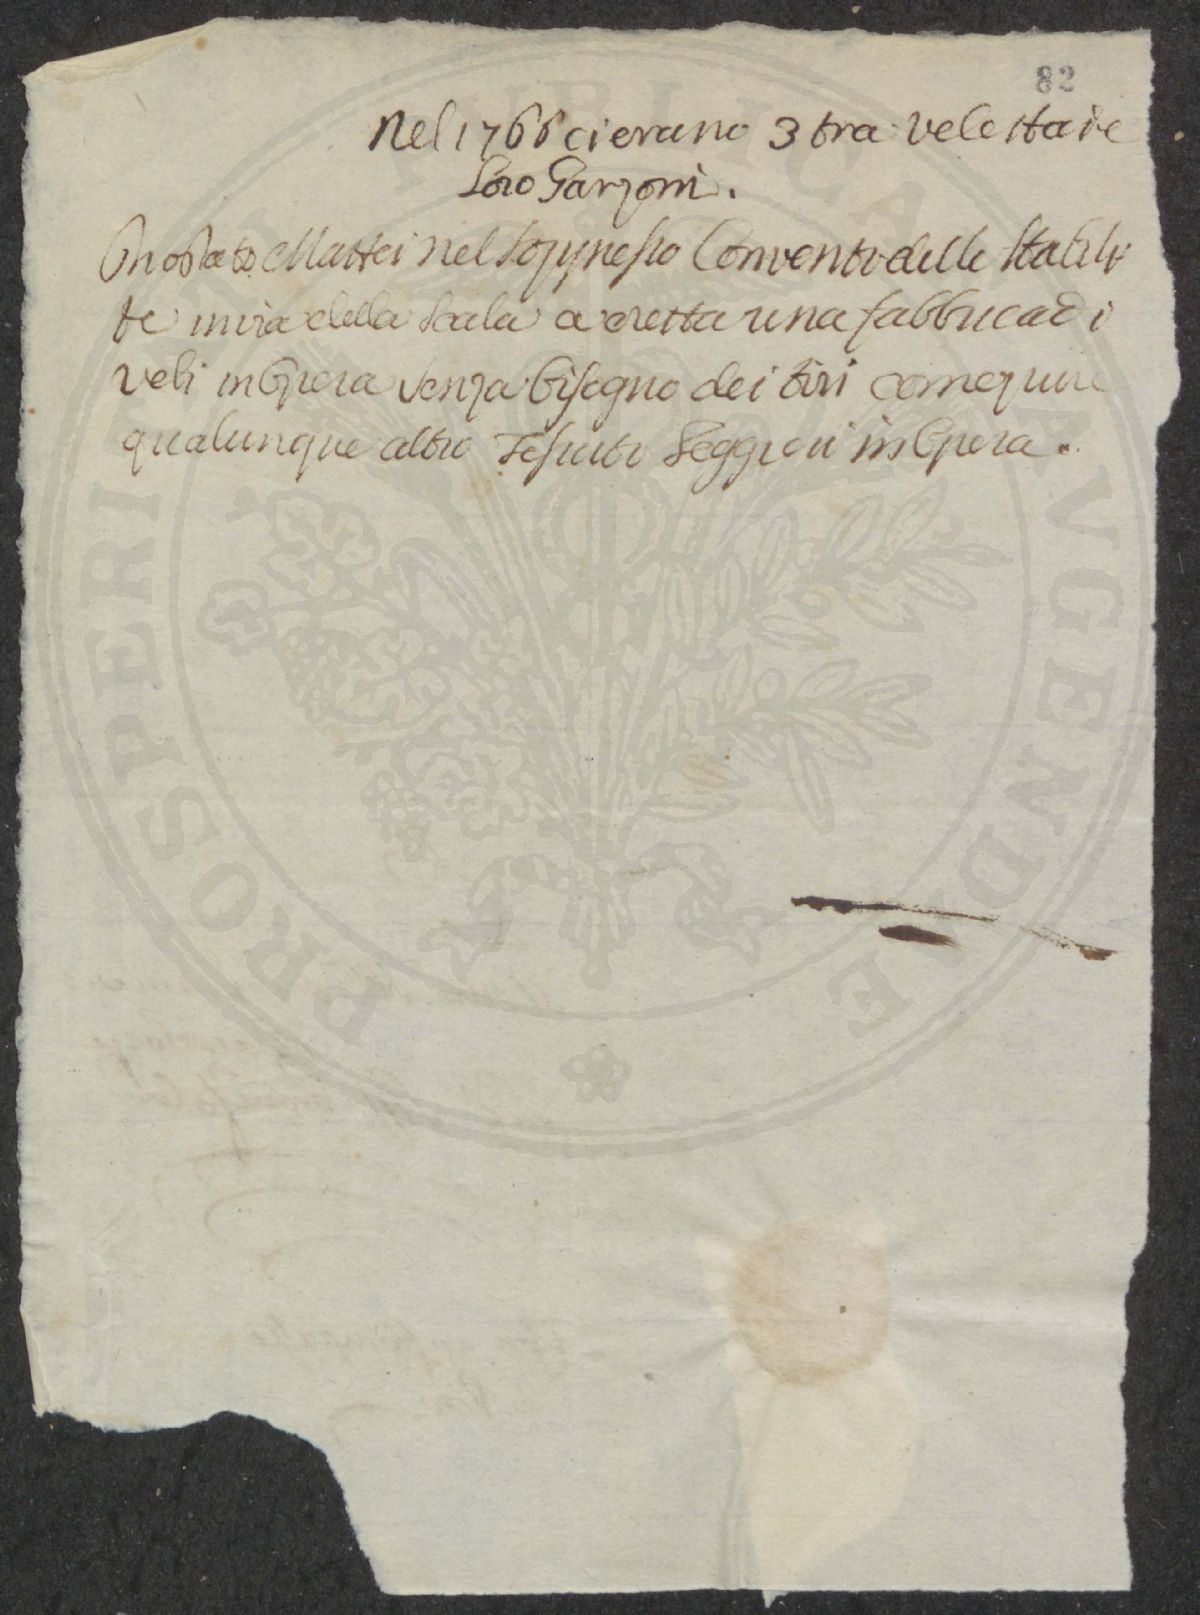 82
Nel 1766 ci erano 3 tra Velettai e
Loro Garzoni.
Onorato Mattei nel Soppresso Convento delle Stabili
te in via della Scala a eretta una fabbrica di
veli in Opera senza bisogno dei tiri come pure
qualunque altro Tessuto Leggieri in Opera.
PUBLICAE AVGENDAE PROSPERITATI